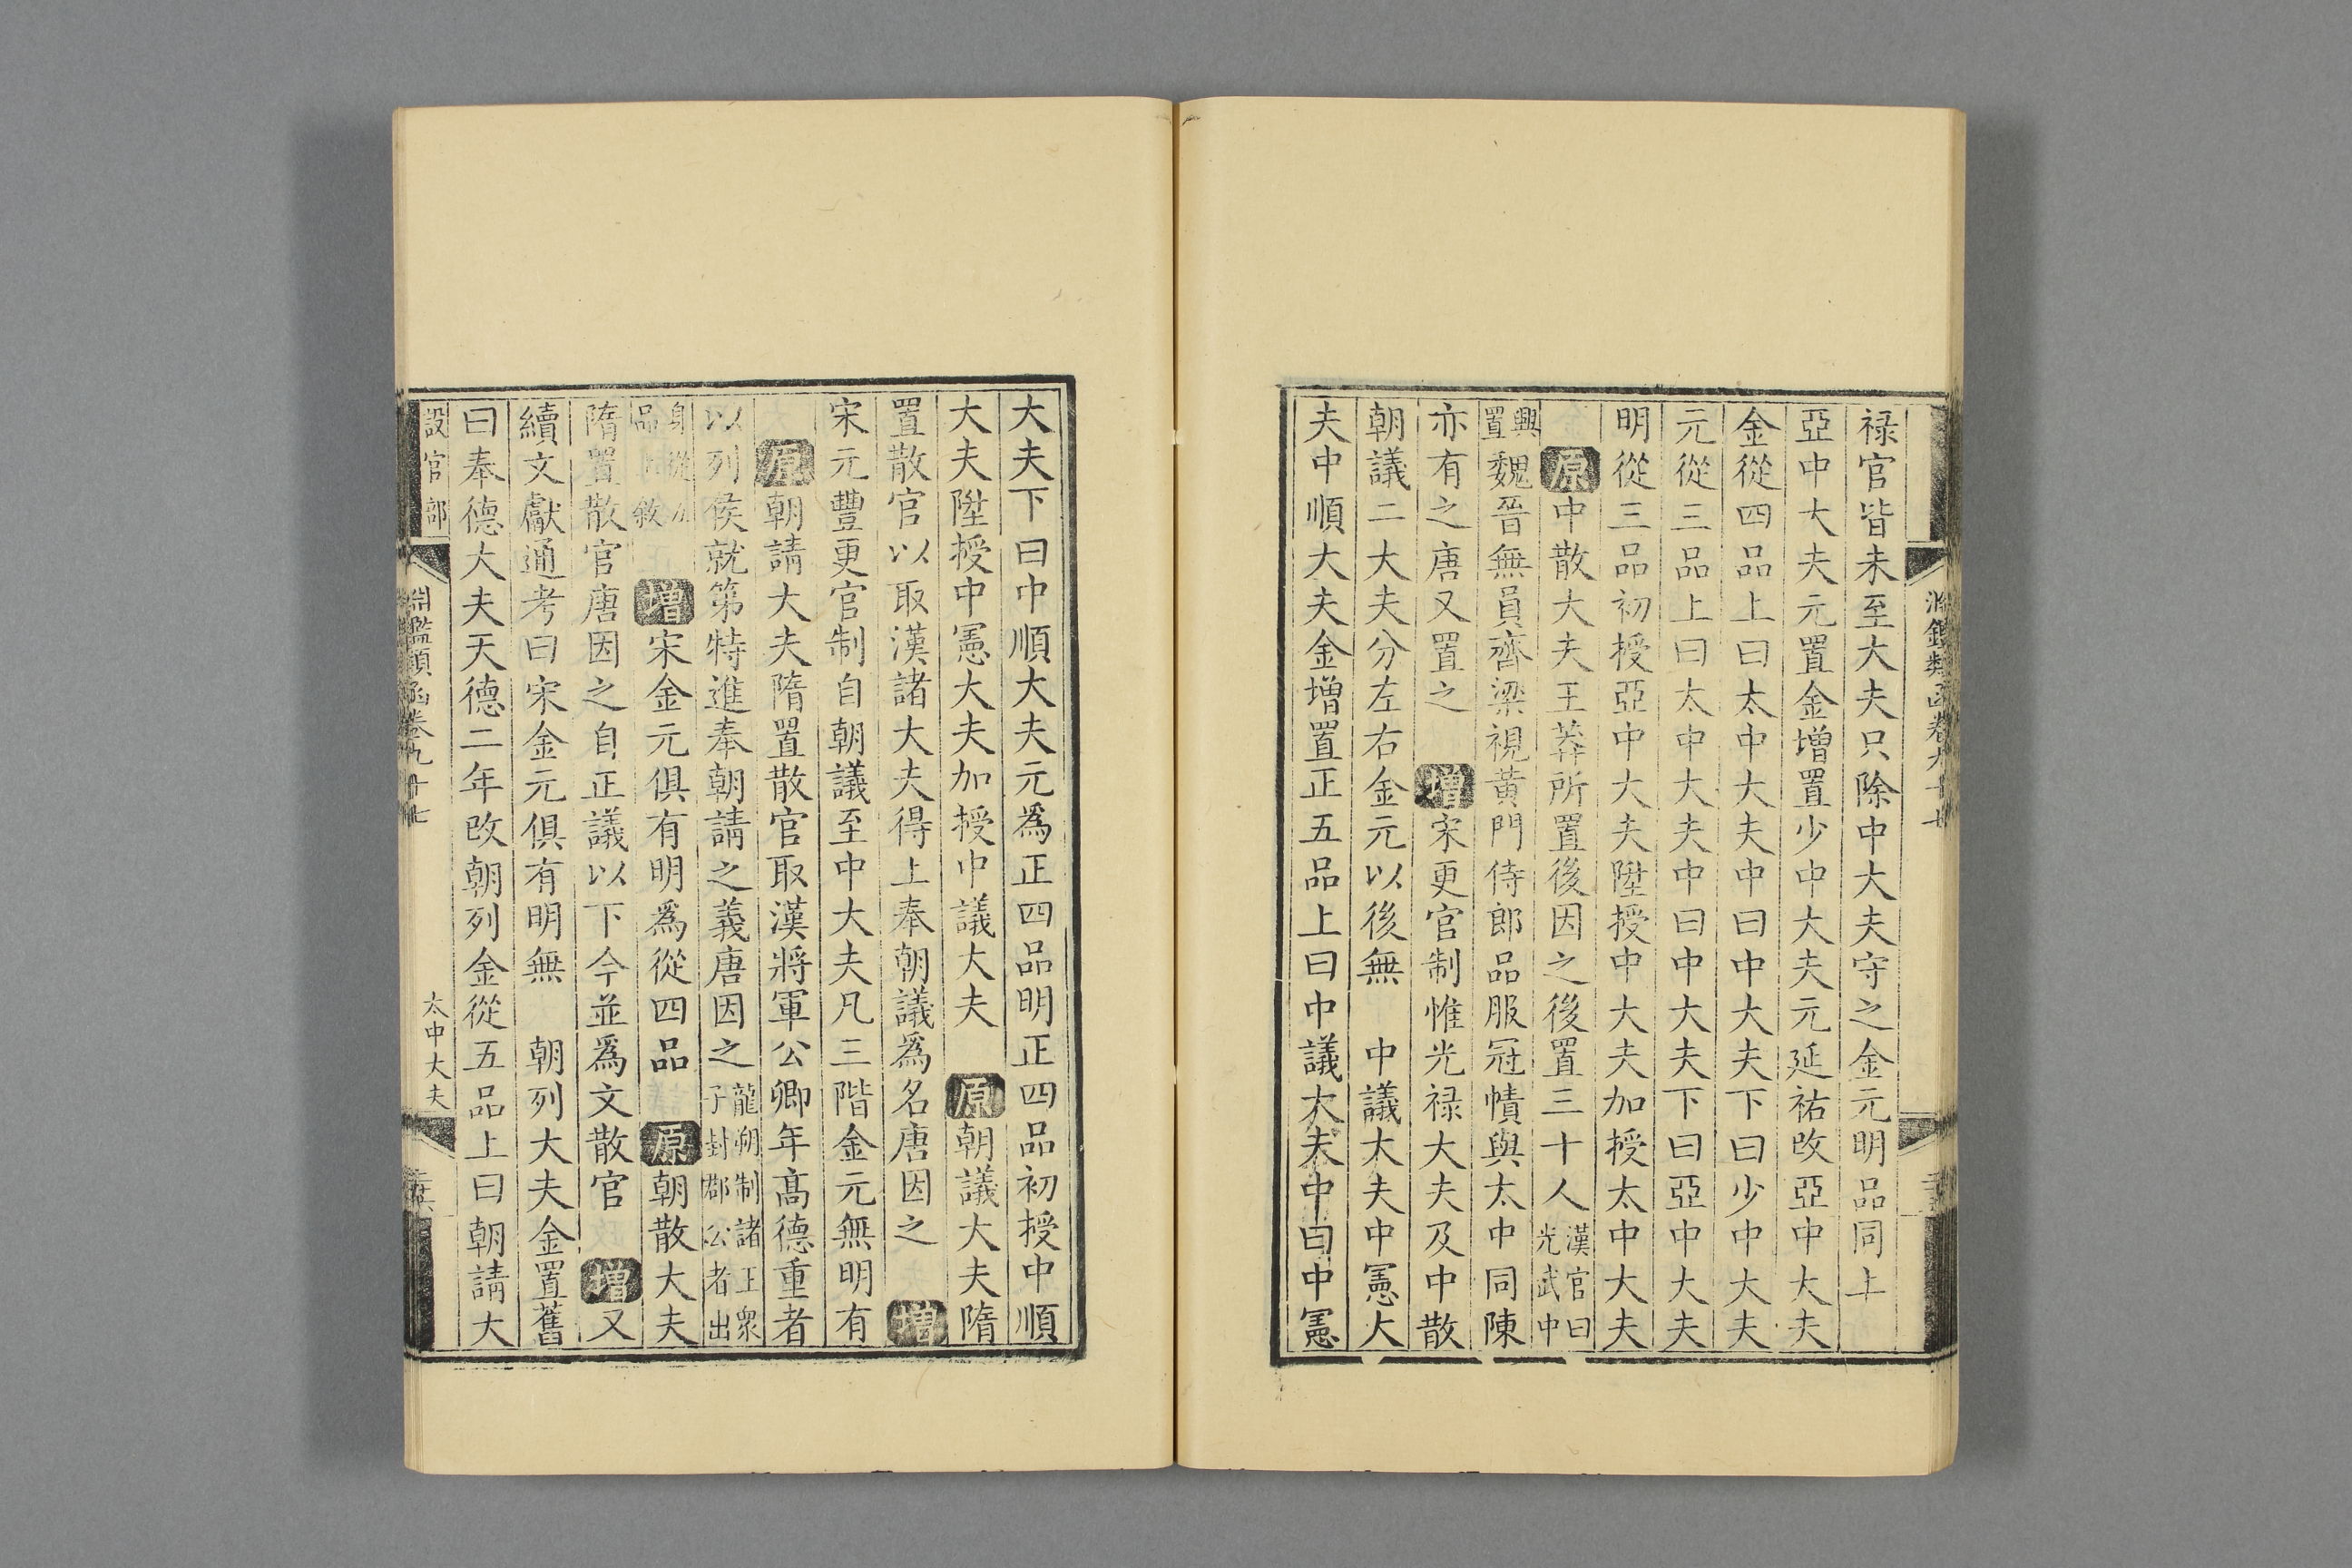 淵鑑類函卷九十七
祿官皆未至大夫只除中大夫守之金元明品同上
亞中大夫元置金增置少中大夫元延祐改亞中大夫
金從四品上曰太中大夫中曰中大夫下曰少中大夫
元從三品上曰太中大夫中曰中大夫下曰亞中大夫
明從三品初授亞中大夫陞授中大夫加授太中大夫
原中散大夫王莽所置後因之後置三十人漢官曰光武中
興置魏晉無員齊梁視黃門侍郎品服冠幘與太中同陳
亦有之唐又置之 增宋更官制惟光祿大夫及中散
朝議二大夫分左右金元以後無 中議大夫中憲大
夫中順大夫金增置正五品上曰中議大夫中曰中憲
大夫下曰中順大夫元爲正四品明正四品初授中順
大夫陞授中憲大夫加授中議大夫 原朝議大夫隋
置散官以取漢諸大夫得上奉朝議爲名唐因之 增
宋元豐更官制自朝議至中大夫凡三階金元無明有
原朝請大夫隋置散官取漢將軍公卿年高德重者
以列侯就第特進奉朝請之義唐因之龍朔制諸王眾子封郡公者出
身從 品 敘 增宋金元俱有明爲從四品 原朝散大夫
隋置散官唐因之自正議以下今並爲文散官 增又
續文獻通考曰宋金元俱有明無 朝列大夫金置舊
曰奉德大夫天德二年改朝列金從五品上曰朝請大
設官部
淵鑑類函卷九十七
太中大夫